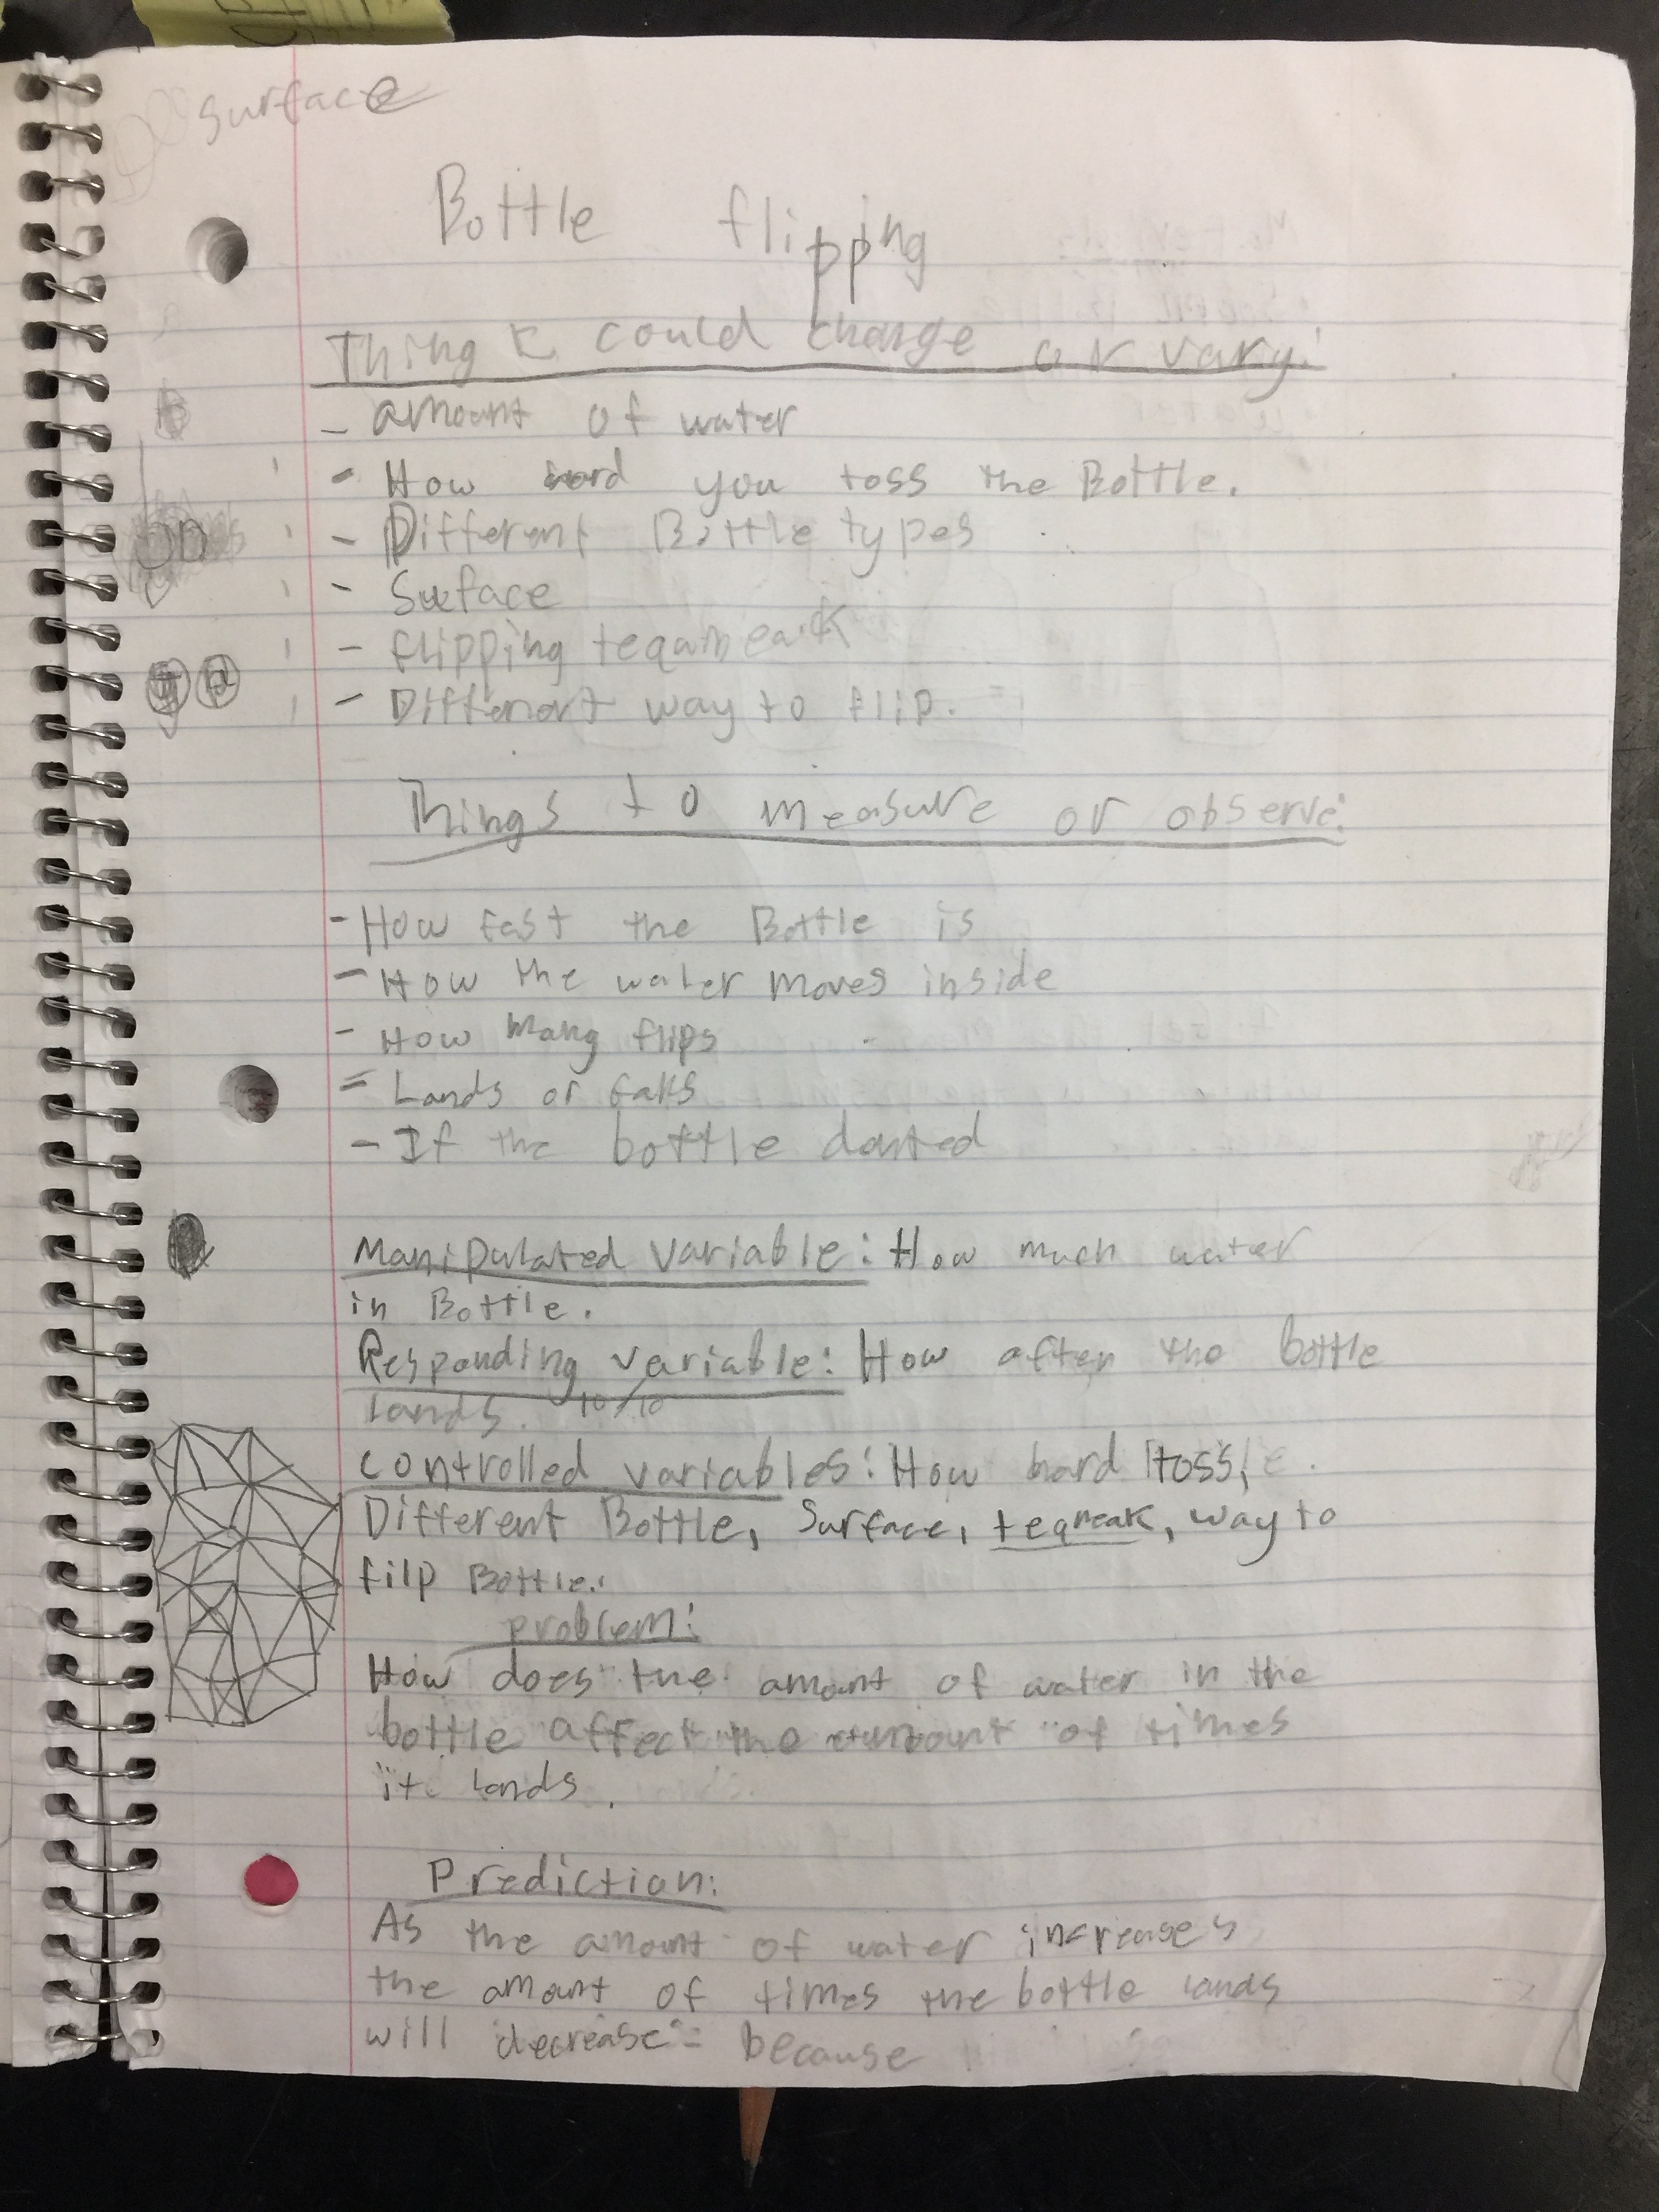 surface
Bottle flipping
Thing I could change or vary:
- amount of water
- How hard you toss the Bottle.
- Different Bottle types
- Surface
- flipping
- Different way to flip.
Things to measure or observe:
- How fast the Bottle is
- How the water moves inside
- How many flips
- Lands or falls
- If the bottle
Manipulated variable: How much water
in Bottle.
Responding variable: How often the bottle
lands. 10/10
controlled variables: How hard toss,
Different Bottle, Surface, teqneak, way to
filp Bottle.
problem:
How does the amount of water in the
bottle affect the amount of times
it lands.
Prediction:
As the amount of water increases
the amount of times the bottle lands
will decrease because